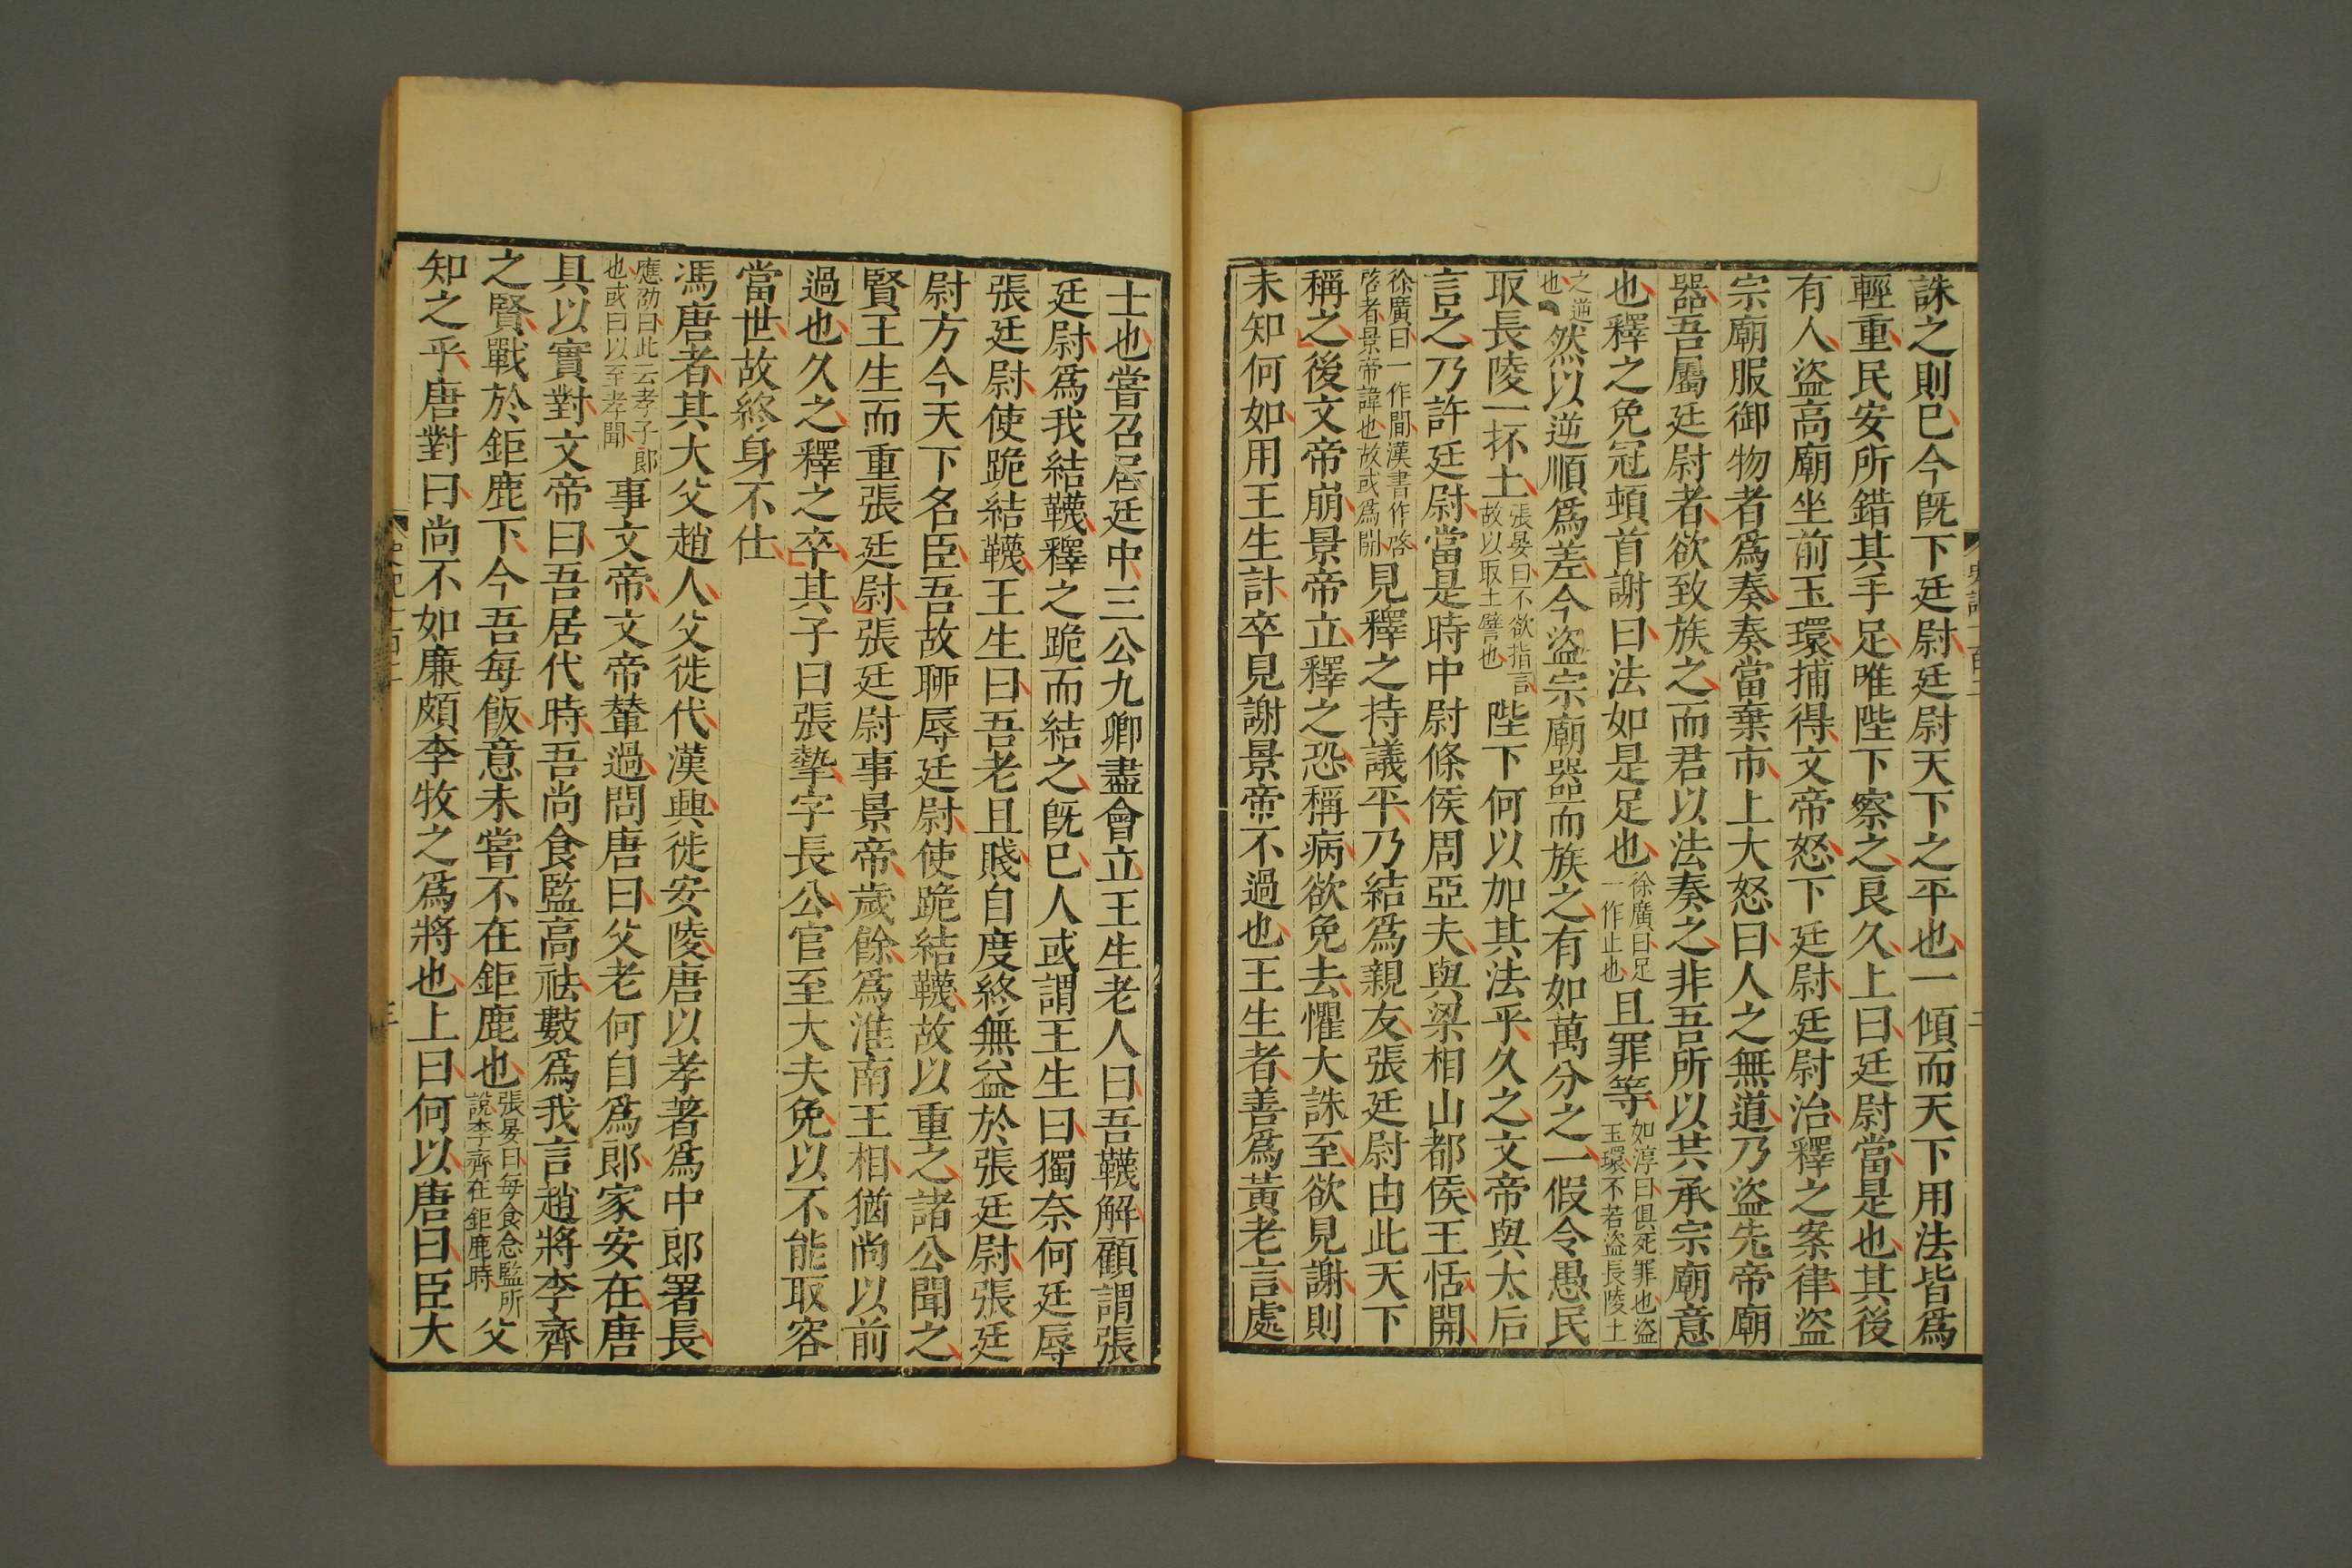 誅之則已今既下廷尉廷尉天下之平也一傾而天下用法皆爲
輕重民安所錯其手足唯陛下察之良久上曰廷尉當是也其後
有人盜高廟坐前玉環捕得文帝怒下廷尉廷尉治釋之案律盜
宗廟服御物者爲奏奏當棄市上大怒曰人之無道乃盜先帝廟
器吾屬廷尉者欲致族之而君以法奏之非吾所以共承宗廟意
也釋之免冠頓首謝曰法如是足也徐廣曰足一作止也且罪等如淳曰俱死罪也盜玉環不若盜長陵土
之逆也然以逆順爲差今盜宗廟器而族之有如萬分之一假令愚民
取長陵一抔土張晏曰不欲指言故以取土譬也陛下何以加其法乎久之文帝與太后
言之乃許廷尉當是時中尉條侯周亞夫與梁相山都侯王恬開
徐廣曰一作閒漢書作啓啓者景帝諱也故或爲開見釋之持議平乃結爲親友張廷尉由此天下
稱之後文帝崩景帝立釋之恐稱病欲免去懼大誅至欲見謝則
未知何如用王生計卒見謝景帝不過也王生者善爲黃老言處
士也嘗召居廷中三公九卿盡會立王生老人曰吾韈解顧謂張
廷尉爲我結韈釋之跪而結之既已人或謂王生曰獨奈何廷辱
張廷尉使跪結韈王生曰吾老且賤自度終無益於張廷尉張廷
尉方今天下名臣吾故聊辱廷尉使跪結韈故以重之諸公聞之
賢王生而重張廷尉張廷尉事景帝歲餘爲淮南王相猶尚以前
過也久之釋之卒其子曰張摯字長公官至大夫免以不能取容
當世故終身不仕
馮唐者其大父趙人父徙代漢興徙安陵唐以孝著爲中郎署長
應劭曰此云孝子郎也或曰以至孝聞事文帝文帝輦過問唐曰父老何自爲郎家安在唐
具以實對文帝曰吾居代時吾尚食監高祛數爲我言趙將李齊
之賢戰於鉅鹿下今吾每飯意未嘗不在鉅鹿也張晏曰每食念監所說李齊在鉅鹿時父
知之乎唐對曰尚不如廉頗李牧之爲將也上曰何以唐曰臣大